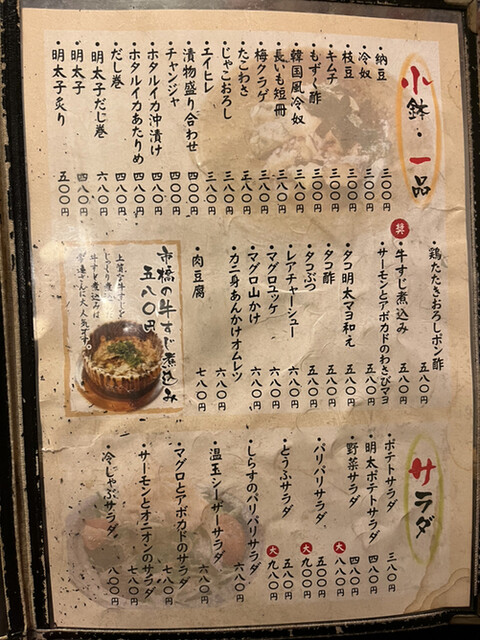 小鉢・一品
・納豆 三〇〇円
・冷奴 三〇〇円
・枝豆 三〇〇円
・キムチ 三〇〇円
・もずく酢 三〇〇円
・韓国風冷奴 三八〇円
・長いも短冊 三八〇円
・梅クラゲ 三五〇円
・たこわさ 三五〇円
・じゃこおろし 三八〇円
・エイヒレ 三八〇円
・漬物盛り合わせ 四〇〇円
・チャンジャ 四〇〇円
・ホタルイカ沖漬け 四八〇円
・ホタルイカあたりめ 四八〇円
・だし巻 四八〇円
・明太子だし巻 六八〇円
・明太子 四八〇円
・明太子炙り 五〇〇円
鶏たたきおろしポン酢 五八〇円
・牛すじ煮込み 五八〇円
・サーモンとアボカドのわさびマヨ 五八〇円
・タコ明太マヨ和え 五八〇円
・タコ酢 五八〇円
・タコぶつ 五八〇円
・レアチャーシュー 六八〇円
・マグロユッケ 六八〇円
・マグロ山かけ 六八〇円
・カニ身あんかけオムレツ 六八〇円
・肉豆腐 七八〇円
市橋の牛すじ煮込み
五八〇円
上質な牛すじを
じっくり煮込んだ
牛すじ煮込みは
大人気です。
サラダ
・ポテトサラダ 三八〇円
・明太ポテトサラダ 四八〇円
・野菜サラダ 四八〇円
大 八八〇円
・パリパリサラダ 五〇〇円
大 九〇〇円
・とうふサラダ 五八〇円
大 九八〇円
・しらすのパリパリサラダ 六八〇円
・温玉シーザーサラダ 六八〇円
・マグロとアボカドのサラダ 七八〇円
・サーモンとオニオンのサラダ 七八〇円
・冷しゃぶサラダ 八〇〇円